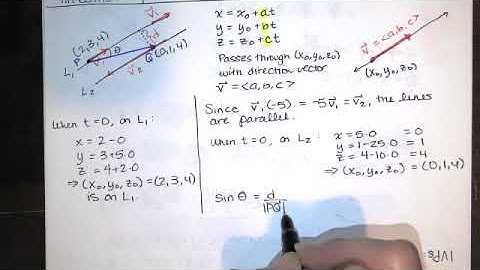 v₁
d
(2,3,4)
P
θ
L₁
v₂
Q(0,1,4)
L₂
x = x₀+at
y = y₀+bt
z = z₀+ct
Passes through (x₀,y₀,z₀)
with direction vector
v⃗ = <a,b,c>
v⃗ = <a,b,c>
(x₀,y₀,z₀)
when t=0, on L₁:
x = 2-0
y = 3+5·0
z = 4+2·0
⇒ (x₀,y₀,z₀)=(2,3,4)
is on L₁.
Since v⃗₁(-5) = -5v⃗₁ = v⃗₂, the lines
are parallel.
when t=0, on L₂:
x = 5·0 = 0
y = 1-25·0 = 1
z = 4-10·0 = 4
⇒ (x₀,y₀,z₀) = (0,1,4)
sin θ = d
|PQ|
IVPs: